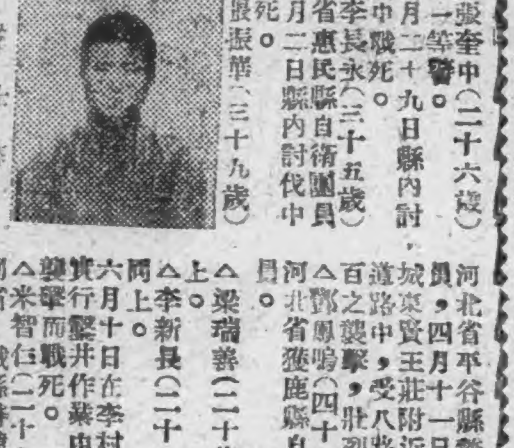 張奎中(二十六歲)
一等警。
月二十九日縣內討,
中戰死。
李長永(三十五歲)
省惠民縣自衛團員
月二日縣內討伐中
死。
張振華(三十九歲)
河北省平谷縣警
員,四月十一日
城東賈王莊附近
道路中,受八路
百之襲擊,壯烈
△鄧鳳鳴(四十
河北省獲鹿縣自
員。
△梁瑞善(二十
上。
△李新長(二十
同上。
六月十日在李村
實行鑿井作業中
襲擊而戰死。
△米智仁(二十